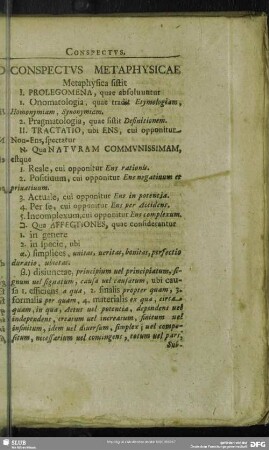 CONSPECTVS.
CONSPECTVS METAPHYSICAE
Metaphysica sistit
I. PROLEGOMENA, quae absoluuntur
1. Onomatologia, quae tradit Etymologiam,
Homonymiam, Synonymiam.
2. Pragmatologia, quae sistit Definitionem.
II. TRACTATIO, ubi ENS, cui opponitur
Non-Ens, spectatur
א. Qua NATVRAM COMMVNISSIMAM,
estque
1. Reale, cui opponitur Ens rationis.
2. Positiuum, cui opponitur Ens negatiuum et
priuatiuum.
3. Actuale, cui opponitur Ens in potentia.
4. Per se, cui opponitur Ens per accidens.
5. Incomplexum, cui opponitur Ens complexum.
ב. Qua AFFECTIONES, quae considerantur
1. in genere
2. in specie, ubi
α.) simplices, unitas, ueritas, bonitas, perfectio
duratio, ubietas.
β.) disiunctae, principium uel principiatum, si-
gnum uel signatum, causa uel causatum, ubi cau-
sa 1. efficiens a qua, 2. finalis propter quam, 3.
formalis per quam, 4. materialis ex qua, circa
quam, in qua, Actus uel potentia, dependens uel
independens, creatum uel increatum, finitum uel
infinitum, idem uel diuersum, simplex uel compo-
situm, necessarium uel contingens, totum uel pars,
Sub-
SLUB
DFG